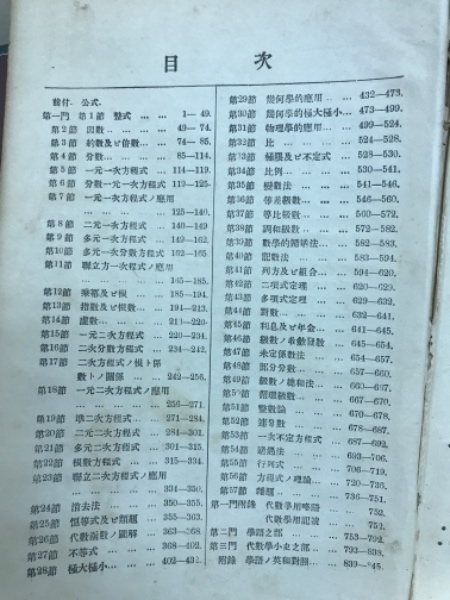 目 次
前付. 公式.
第一門 第1節 整式 … … 1— 49.
第2節 因數 … … … 49— 74.
第3節 約數及ビ倍數… … 74— 85.
第4節 分數… … … 85—114.
第5節 一元一次方程式 …114—119.
第6節 分數一元一次方程式 119—125.
第7節 一元一次方程式ノ應用
… … … … 125—140.
第8節 二元一次方程式 …140—149
第9節 多元一次方程式 …149—162.
第10節 多元一次分數方程式 162—165.
第11節 聯立方一次程式ノ應用
… … … … 165—185.
第12節 乘冪及ビ根 … …185—194.
第13節 指數及ビ根數… …194—213.
第14節 虛數… … … 211—220.
第15節 一元二次方程式 …220—234.
第16節 二次分數方程式 …234—242.
第17節 二次方程式ノ根ト係
數トノ關係 … …242—256.
第18節 一元二次方程式ノ應用
… … … … 256—271.
第19節 準二次方程式 …271—284.
第20節 二元二次方程式 …284—301.
第21節 多元二次方程式 …301—315.
第22節 根數方程式 … …315—334.
第23節 聯立二次方程式ノ應用
… … … … 334—350.
第24節 消去法 … … …350—355.
第25節 恒等式及ビ類題 …355—363.
第26節 代數函數ノ圖解 …363—368
第27節 不等式 … … …368—402.
第28節 極大極小… … …402—432.
第29節 幾何學的應用 … …432—473.
第30節 幾何學的極大極小…473—499.
第31節 物理學的應用… …499—524.
第32節 比 … … … …524—528.
第33節 極限及ビ不定式 …528—530.
第34節 比例… … … …530—541.
第35節 變數法 … … …541—546.
第36節 等差級數… … …546—560.
第37節 等比級數… … …560—572.
第38節 調和級數… … …572—582.
第39節 數學的歸納法… …582—583.
第40節 記數法 … … …583—594.
第41節 列方及ビ組合… …594—620.
第42節 二項式定理 … …620—629.
第43節 多項式定理 … …629—632.
第44節 對數… … … …632—641.
第45節 利息及ビ年金… …641—645.
第46節 級數ノ收斂發散 …645—654.
第47節 未定係數法 … …654—657.
第48節 部分分數… … …657—660.
第49節 級數ノ總和法… …660—667.
第50節 循環級數… … …667—670.
第51節 整數論 … … …670—678.
第52節 連分數 … … …678—687.
第53節 一次不定方程式 …687—692.
第54節 或然法… … …693—706.
第55節 行列式 … … …706—719.
第56節 方程式ノ理論… …720—736.
第57節 雜題… … … …736—751.
第一門附錄 代數學用略語 752.
代數學用記號 752.
第二門 學語之部 … … …753—792.
第三門 代數學小史之部 … …793—838.
附錄 學語ノ英和對照… …839—845.